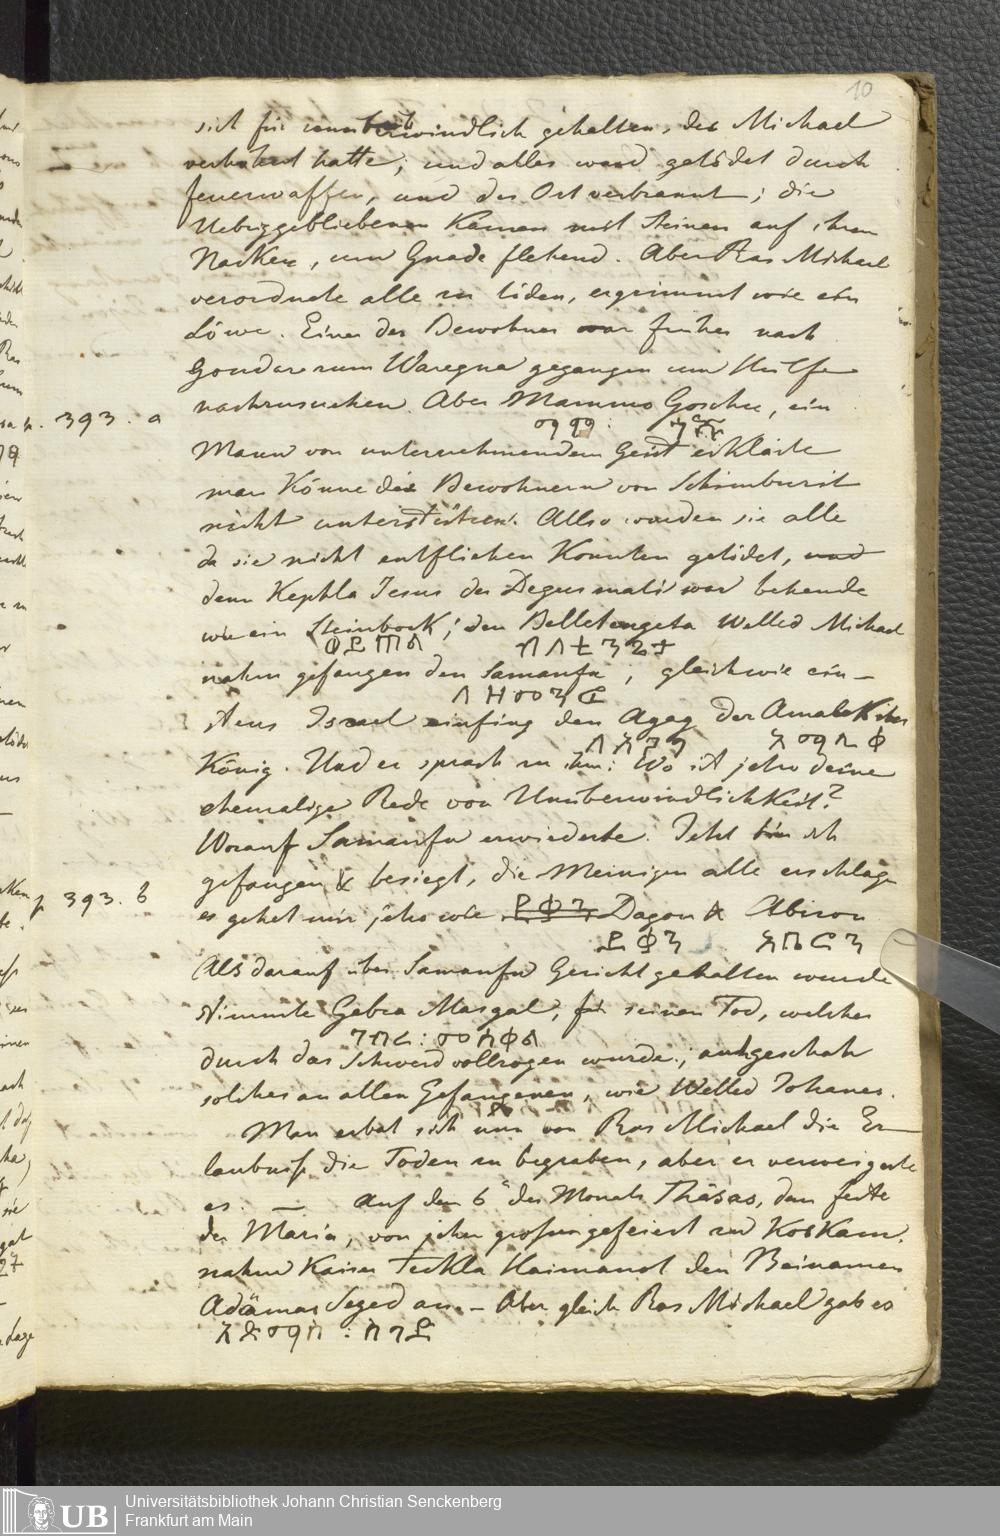 10
sich für unüberwindlich gehalten, des Michael
verhöhnt hatte; und alles ward getödet durch
feuerwaffen, und der Ort verbrannt; die
Uebriggebliebenen kamen mit Steinen auf ihren
Nacken, um Gnade flehend. Aber Ras Michael
verordnete alle zu töden, ergrimmt wie ein
Löwe. Einer der Bewohner war früher nach
Gondar zum Waregna gegangen um Hülfe
p. 393. a
nachzusuchen. Aber Mammo Goschu, ein
Mann von unternehmendem Geist erklärte
man könne die Bewohnern von
nicht unterstützen. Allso wurden sie alle
da sie nicht entfliehen konnten getödet, und
dem Kephla Jesus der war behende
wie ein Steinbock; den Belletengeta Welled Michael
ወይጠል በላቴንጌታ
nahm gefangen den Samanfu, gleichwie ein
Israel einfing den Agag der Amalekiter
አማሌቅ
König. Und er sprach zu ihm: Wo ist jezo deine
ehemalige Rede von Unüberwindlichkeit?
Worauf Samanfu erwiederte. Jetzt bin ich
gefangen & besiegt, die Meinigen alle erschlagen
p 393. b
es gehet mir jezo wie Dagon & Abiron
ዳቆን አቢሮን
Als darauf über Samanfu Gericht gehalten wurde
stimmte Gebra Masgal, für seinen Tod, welcher
ገብረ፡መስቀል
durch das Schwerd vollzogen wurde; auch geschah
solches an allen Gefangenen, wie Welled Johanes.
Man erbat sich nun von Ras Michael die Er-
laubniß die Toden zu begraben, aber er verweigerte
es. — Auf den 6ten des Monats Thäsas, dem feste
der Maria, von jeher grosen gefeiert zu Koskam,
nahm Kaiser Teckla Haimanot den Beinamen
Adämas Seged an. – Aber gleich Ras Michael gab es
አድማስ፡ሰገድ
Universitätsbibliothek Johann Christian Senckenberg
UB Frankfurt am Main